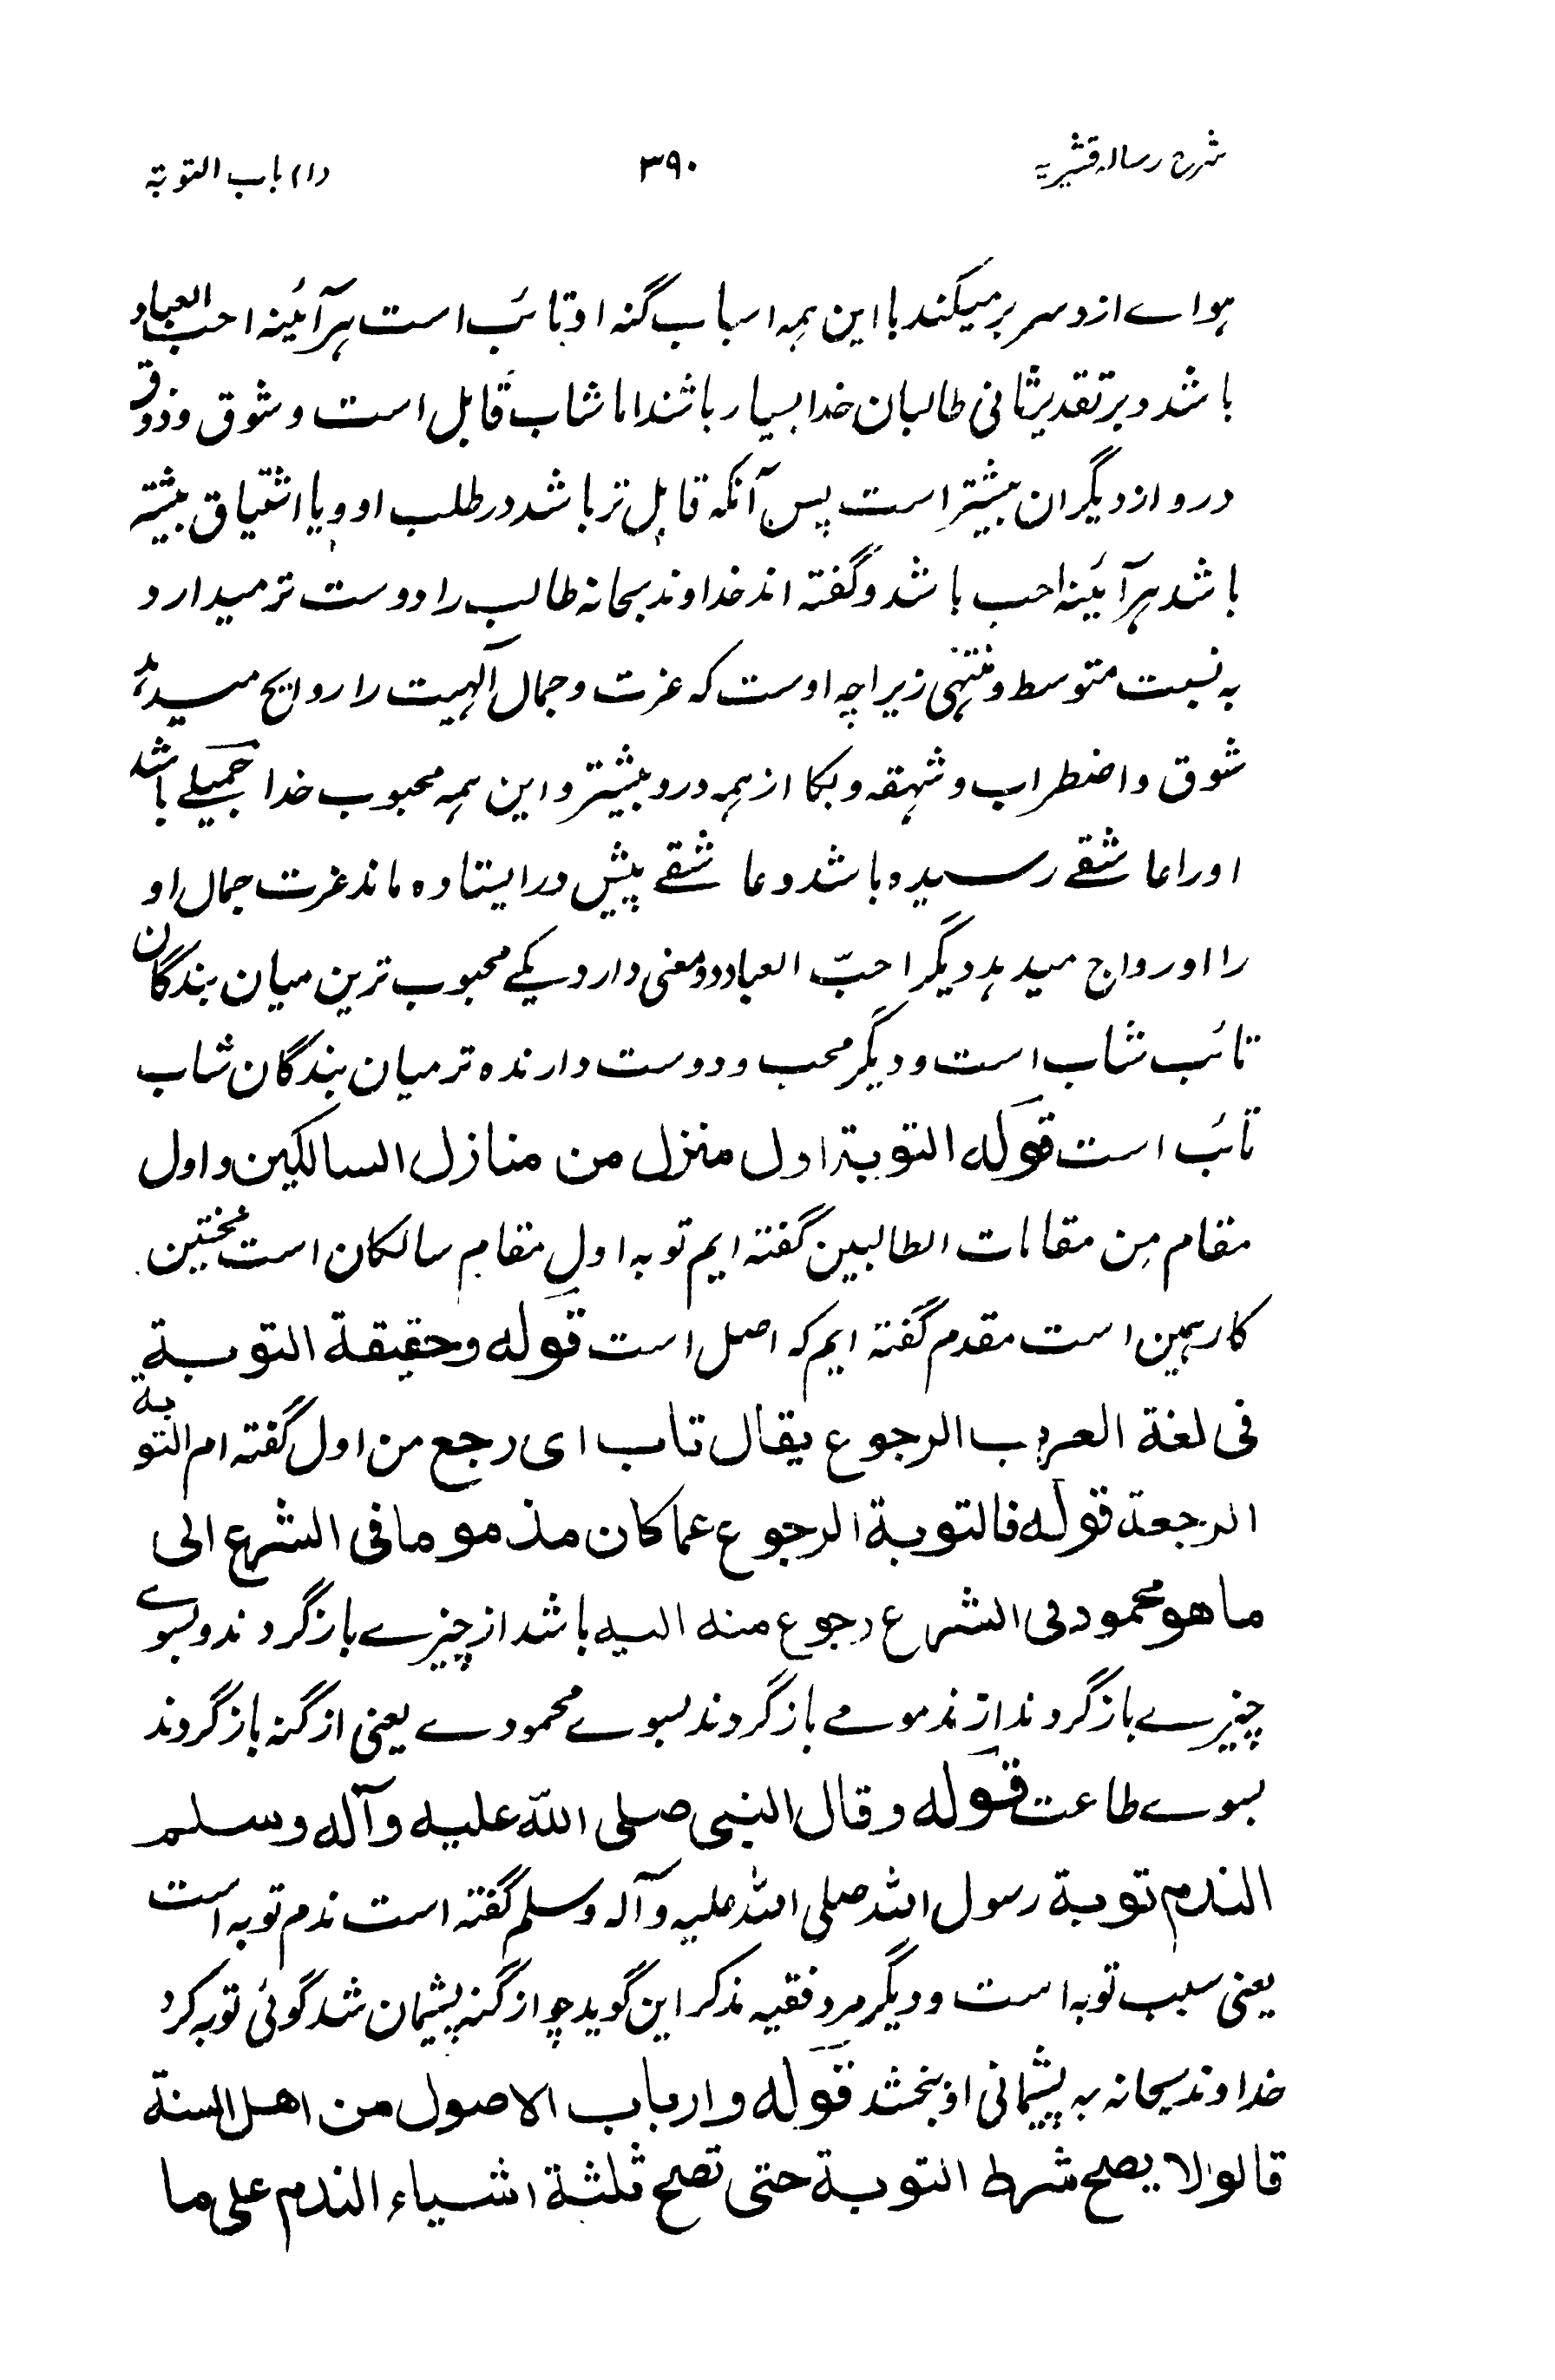 شرح رسالہ قشیریہ ۳۹۰ (۱) باب التوبۃ
ہواے ازو سر برمیکند با این ہمہ اسباب گنہ او تائب است ہر آئینہ احب العباد
باشد و بر تقدیر ثانی طالبان خدا بسیار باشند اما شاب قابل است و شوق و ذوق
درو از دیگران بیشتر است پس آنکہ قابل تر باشد در طلب او و با اشتیاق بیشتر
باشد ہر آئینہ احب باشد و گفتہ اند خداوند سبحانہ طالب را دوست تر میدارد
بہ نسبت متوسط و منتہی زیراچہ اوست کہ عزت و جمال آلہیت را رواج میدہد
شوق و اضطراب و شہقہ و بکا از ہمہ درو بیشتر و این ہمہ محبوب خدا جمیلے باشد
اورا عاشقے رسیدہ باشد و عاشقے پیش در ایستادہ ماند عزت جمال او
را او رواج میدہد دیگر احبّ العباد دو معنی دارد یکے محبوب ترین میان بندگان
تائب شاب است و دیگر محب و دوست دارندہ تر میان بندگان شاب
تائب است قولہ التوبۃ اول منزل من منازل السالکین و اول
مقام مِن مقامات الطالبین گفتہ ایم توبہ اول مقام سالکان است نخستین
کار ہمین است مقدم گفتہ ایم کہ اصل است قولہ وحقیقۃ التوبۃ
فی لغۃ العرب الرجوع یقال تاب ای رجع من اول گفتہ ام التوبۃ
الرجعۃ قولہ فالتوبۃ الرجوع عما کان مذموما فی الشرع الی
ما ھو محمود فی الشرع رجوع منہ الیہ باشد از چیزے باز گردند و بسوے
چیزے باز گردند از مذمومے باز گردند بسوے محمودے یعنی از گنہ باز گردند
بسوے طاعت قولہ و قال النبی صلی اللہ علیہ وآلہ وسلم
الندم توبۃ رسول اللہ صلی اللہ علیہ وآلہ وسلم گفتہ است ندم توبہ است
یعنی سبب توبہ است و دیگر مرد فقیہ مذکر این گوید چو از گنہ پشیمان شد گوئی توبہ کرد
خداوند سبحانہ بہ پشیمانی او بخشد قولہ و ارباب الاصول من اھل السنۃ
قالوا لا یصح شرط التوبۃ حتی تصح ثلثۃ اشیاء الندم علی ما